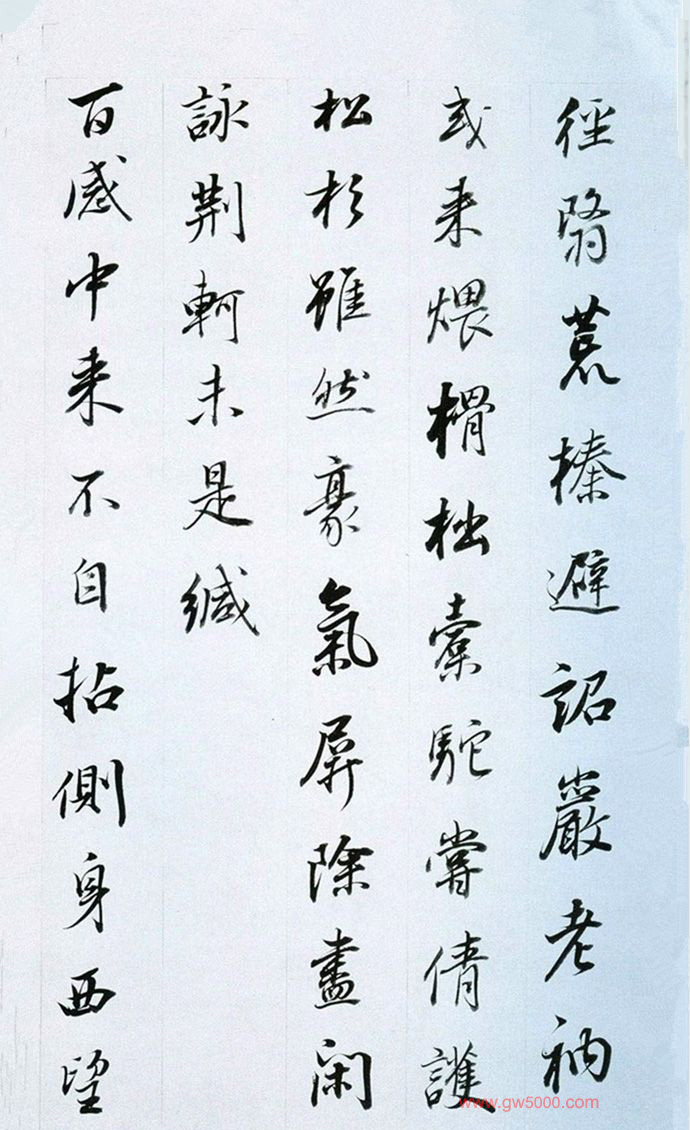 徑翳荒榛避詔巖老衲
或来煨榾柮橐駝嘗倩護
松杉雖然豪氣屏除盡閑
詠荆軻未是緘
百感中来不自拈側身西望
www.gw5000.com